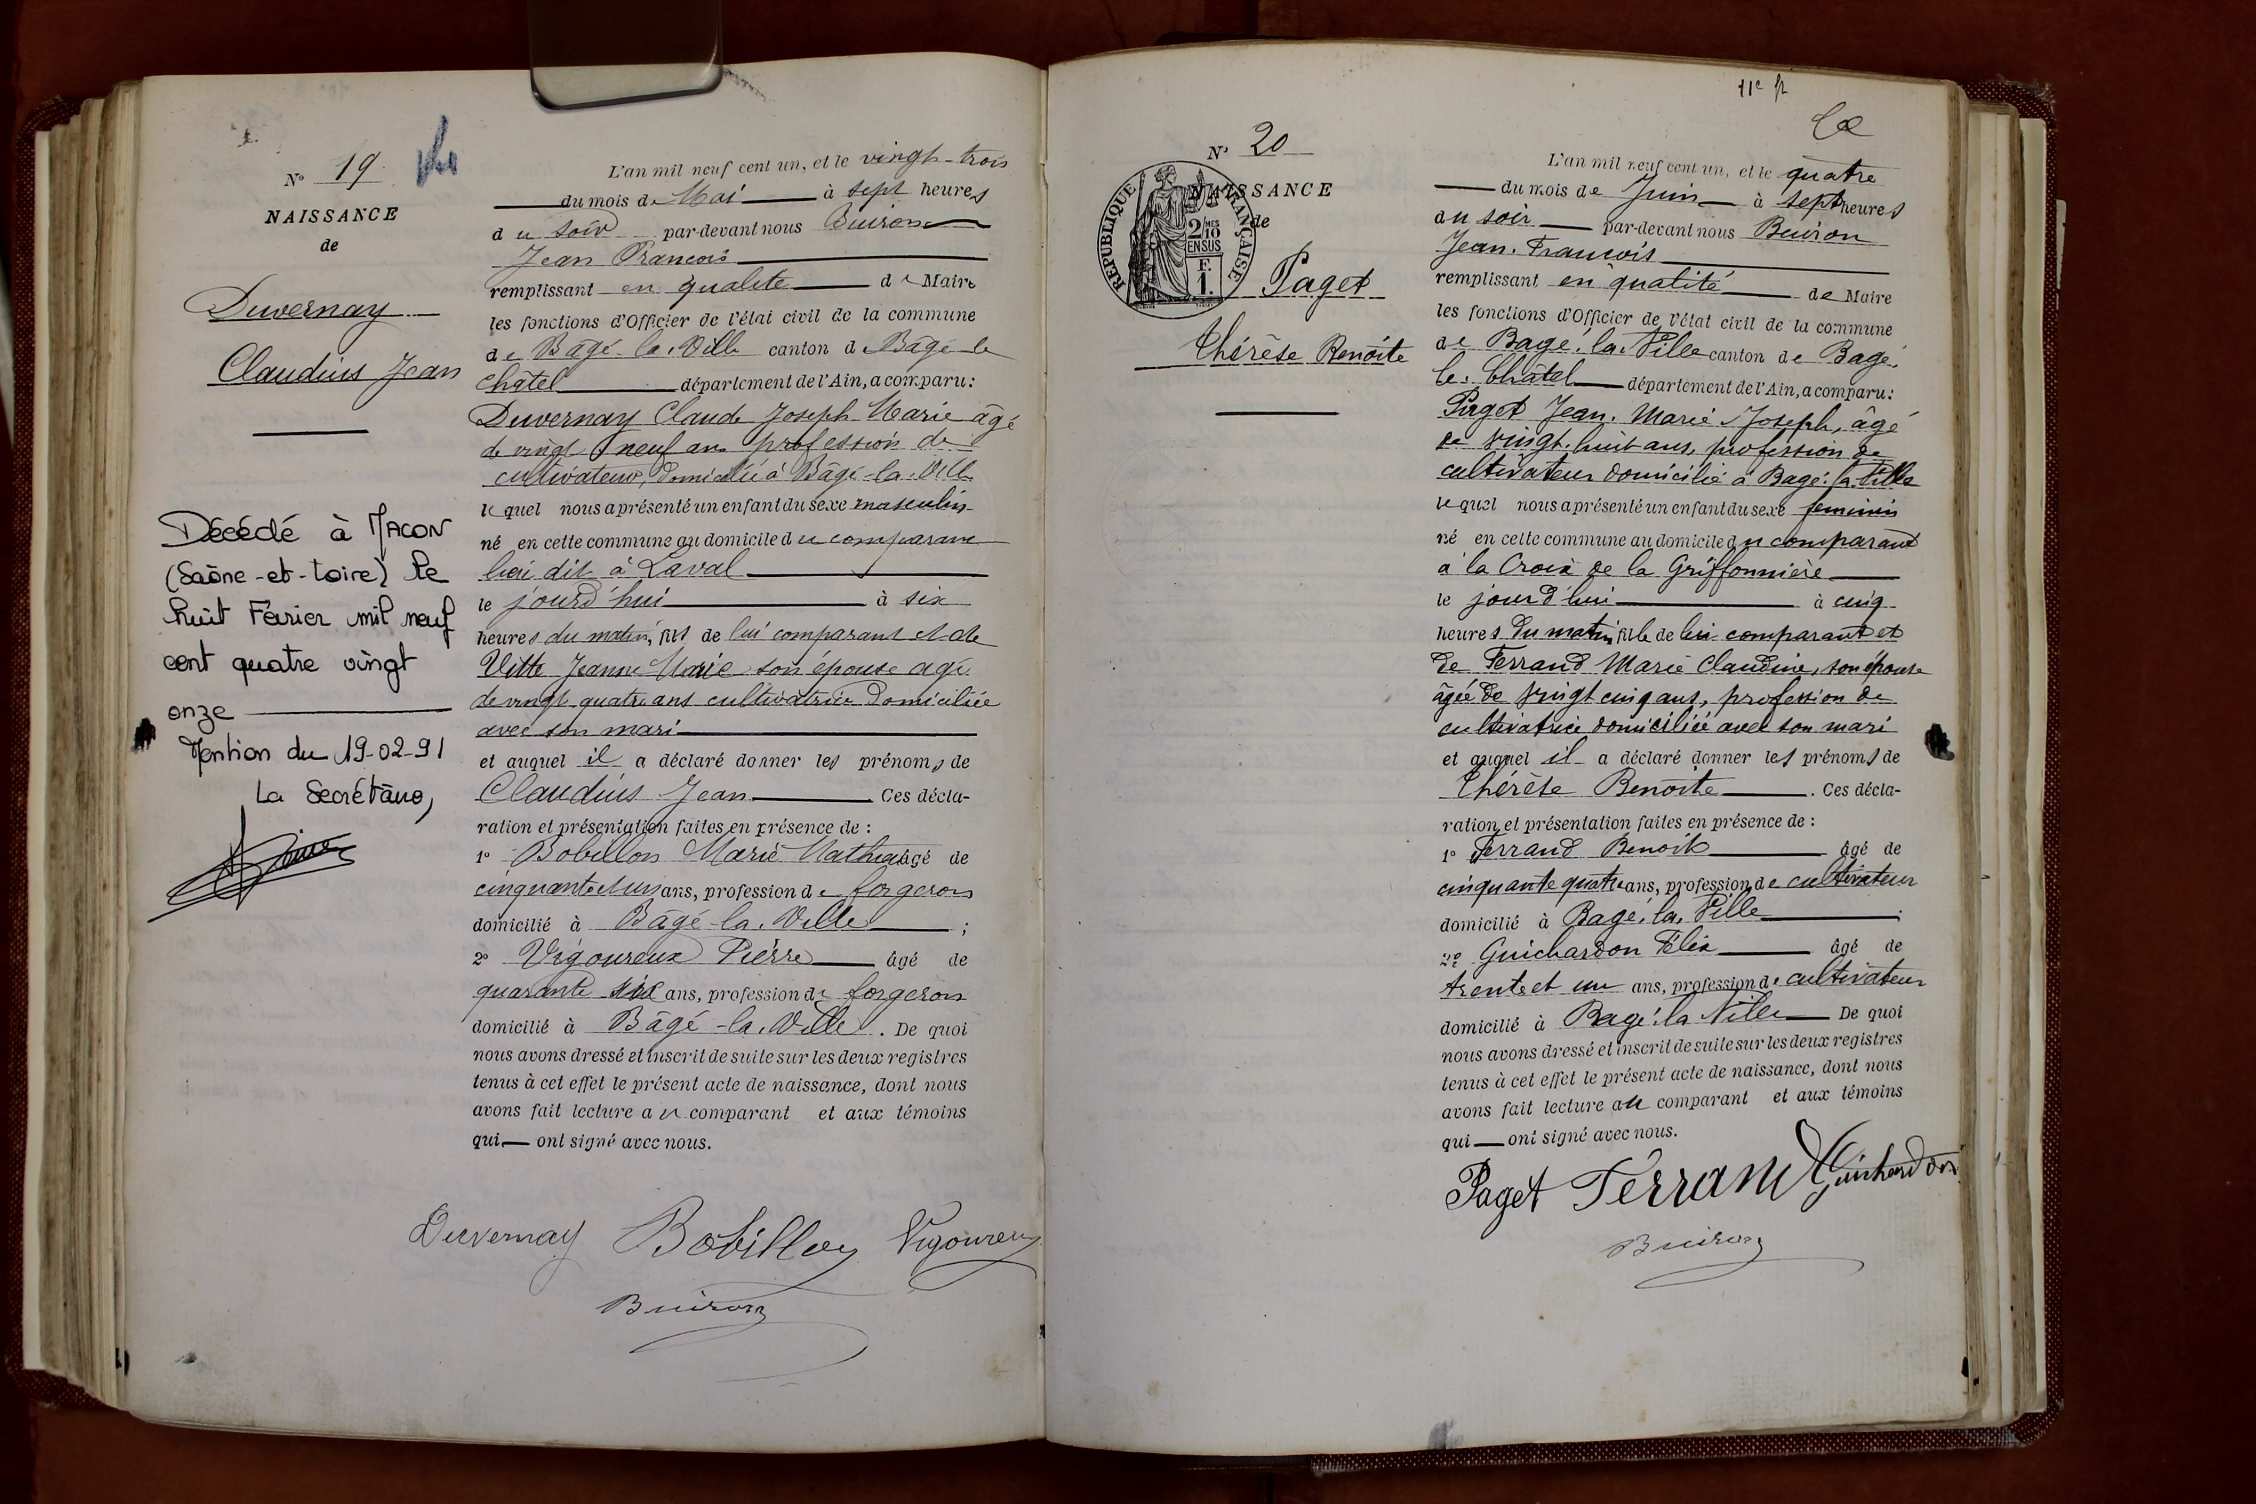 Nº 19
NAISSANCE
de
Duvernay
Claudius Jean
Décédé à MACON
(Saône-et-Loire) le
huit Février mil neuf
cent quatre vingt
onze
Mention du 19-02-91
La Secrétaire,
L'an mil neuf cent un, et le vingt-trois
du mois de Mai à sept heures
du soir par-devant nous Buiron
Jean François
remplissant en qualité de Maire
les fonctions d'Officier de l'état civil de la commune
de Bâgé-la-Ville canton de Bâgé-le
Châtel département de l'Ain, a comparu:
Duvernay Claude Joseph Marie âgé
de vingt neuf ans profession de
cultivateur, domicilié à Bâgé-la-Ville
lequel nous a présenté un enfant du sexe masculin
né en cette commune au domicile du comparant
lieu dit à Laval
le jourd'hui à six
heures du matin, fils de lui comparant et de
Vitte Jeanne Marie son épouse agée
de vingt quatre ans cultivatrice domiciliée
avec son mari
et auquel il a déclaré donner les prénoms de
Claudius Jean Ces décla-
ration et présentation faites en présence de :
1º Bobillon Marie Mathieu âgé de
cinquante et un ans, profession de forgeron
domicilié à Bâgé-la-Ville ;
2º Vigoureux Pierre âgé de
quarante six ans, profession de forgeron
domicilié à Bâgé-la-Ville. De quoi
nous avons dressé et inscrit de suite sur les deux registres
tenus à cet effet le présent acte de naissance, dont nous
avons fait lecture au comparant et aux témoins
qui ont signé avec nous.
Duvernay Bobillon Vigoureux
Buiron
11e f
Nº 20
NAISSANCE
de
RÉPUBLIQUE FRANÇAISE
2/10 MES
EN SUS
F.
1.
Paget
Thérèse Benoîte
L'an mil neuf cent un, et le quatre
du mois de Juin à sept heures
du soir par-devant nous Buiron
Jean François
remplissant en qualité de Maire
les fonctions d'Officier de l'état civil de la commune
de Bagé-la-Ville canton de Bagé
le-Châtel département de l'Ain, a comparu:
Paget Jean Marie Joseph, âgé
de vingt-huit ans, profession de
cultivateur domicilié à Bagé-la-Ville
lequel nous a présenté un enfant du sexe feminin
né en cette commune au domicile du comparant
à la Croix de la Griffonnière
le jourd'hui à cinq
heures du matin fille de lui comparant et
de Ferrand Marie Claudine, son épouse
âgée de vingt cinq ans, profession de
cultivatrice domiciliée avec son mari
et auquel il a déclaré donner les prénoms de
Thérèse Benoîte. Ces décla-
ration et présentation faites en présence de :
1º Ferrand Benoît âgé de
cinquante quatre ans, profession de cultivateur
domicilié à Bagé-la-Ville ;
2º Guichardon Félix âgé de
trente et un ans, profession de cultivateur
domicilié à Bagé-la-Ville De quoi
nous avons dressé et inscrit de suite sur les deux registres
tenus à cet effet le présent acte de naissance, dont nous
avons fait lecture au comparant et aux témoins
qui ont signé avec nous.
Paget Ferrand Guichardon
Buiron